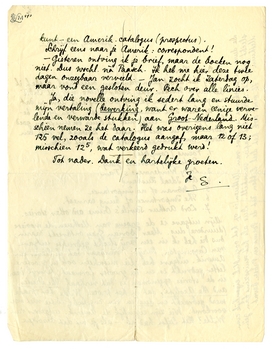 kunt - een Amerik. catalogus (prospectus).
Schrijf eens naar je Amerik. correspondent!
- Gisteren ontving ik je brief, maar de boeken nog
niet. Dus wacht na Paasch. Ik heb me hier deze
dagen onzegbaar verveeld. - Jan zocht ik Zaterdag op,
maar vond een gesloten deur. Pech over alle linies.
Ja, die novelle ontving ik sedert lang en stuurde
mijn vertaling (bewerking, want er waren eenige verve-
lende en verwarde stukken) aan Groot-Nederland. Mis-
schien nemen ze het daar. Het was overigens lang niet
125 vel, zooals de catalogus aangaf, maar 12 of 13;
misschien 12⁵, wat verkeerd gedrukt werd!
Tot nader. Dank en hartelijke groeten.
S.